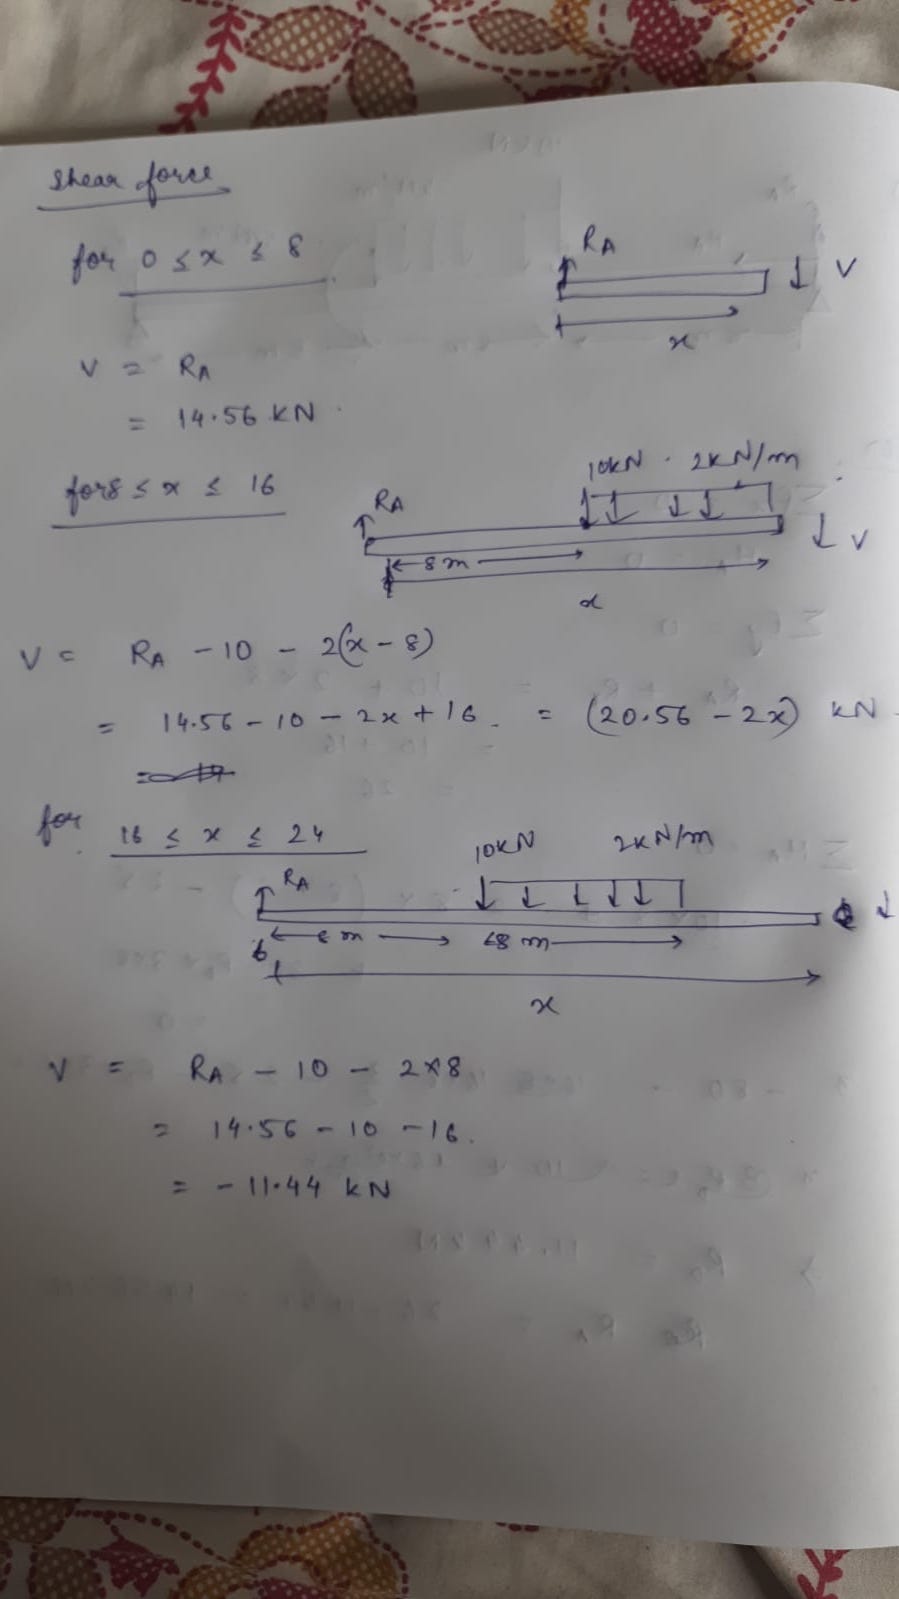 Shear force
for 0 ≤ x ≤ 8
RA
V
x
V = RA
= 14.56 KN.
for 8 ≤ x ≤ 16
10KN. 2KN/m
RA
V
8 m
x
V = RA - 10 - 2(x - 8)
= 14.56 - 10 - 2x + 16. = (20.56 - 2x) KN.
for
16 ≤ x ≤ 24
10KN 2KN/m
RA
8 m
x
V = RA - 10 - 2×8
= 14.56 - 10 - 16.
= - 11.44 KN